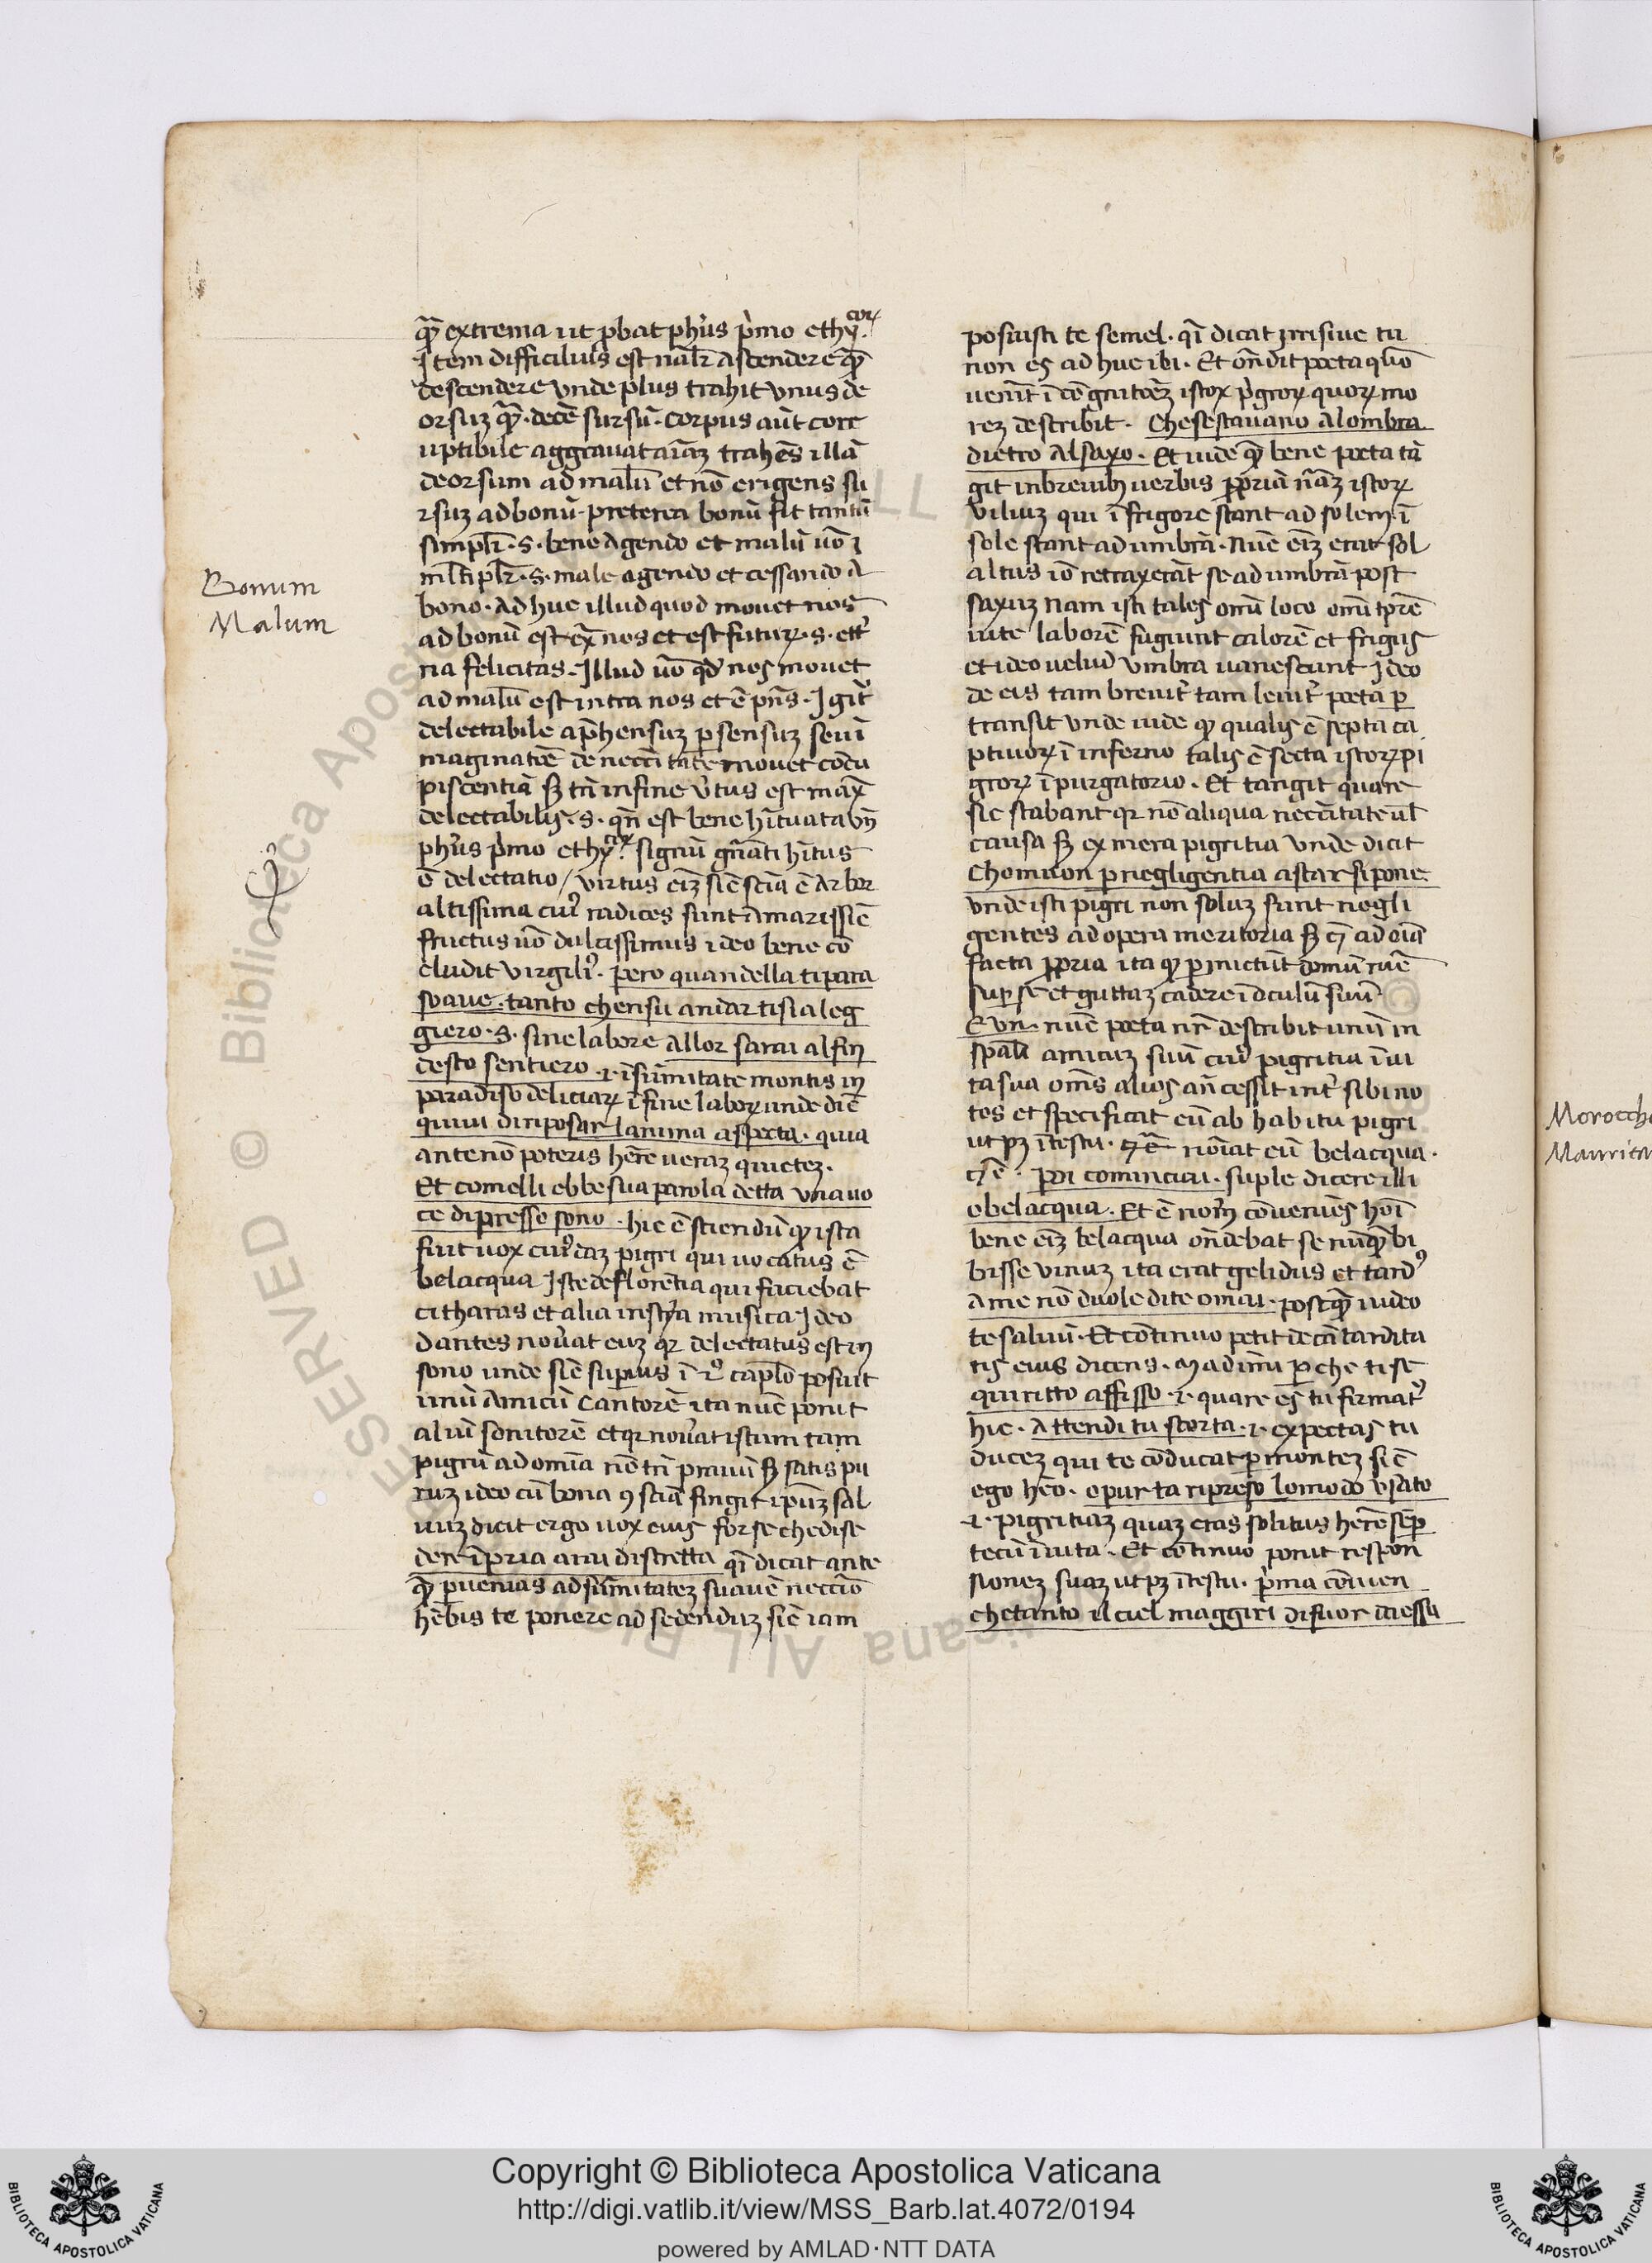 Bonum
Malum
qᷓ extrema ut ꝓbat phūs p̓mo ethycoꝝ.
Item difficiluis est nāłr ascendere qᷓ
descendere unde plus trahit unus de
orsuȝ qᷓ. decē sursū. Corpus aūt corr
uptibile aggravat aīaȝ trahēs illā
deorsum ad malū et nō erigens su
rsuȝ ad bonū. preterea bonū fit tantū
simpłr. s. bene agendo et malū uō
młtipłr. s. male agendo et cessando a
bono. Ad huc illud quod movet nos
ad bonū est ex̄ nos et est futuꝝ. s. et̓
na felicitas. Illud uō qđ nos movet
ad malū est intra nos et ē pn̄s. Igit̓
delectabile ap̄hensuȝ ꝑ sensuȝ seu ī
maginatōē de neccītate movet cōcu
piscentiā sȝ tn̄ in fine v̓tus est max̄
delectabilis. s. qn̄ est bene hītuata vn̄
phūs p̓mo ethycoꝝ. signū gn̄ati hītus
ē delectatio / virtus eīȝ sic̄ scīa ē arbor
altissima cui᷒ radices sunt amarissīe
fructus uō dulcissimus ideo bene cō
cludit virgili᷒. pero quandella ti para
soave. tanto chensu andar ti sia leg
giero. s. sine labore allor sarai al fin
desto sentiero .i. ī sūmitate montis in
paradiso deliciaꝝ ī fine laboꝝ unde dīc
quivi di riposar lanima aspecta. quia
ante nō poteris hēre veraȝ quietez.
Et comelli ebbe sua parola detta una vo
ce di presso sono. hic ē sciendū qꝫ ista
fuit vox cui᷒daȝ pigri qui vocatus ē
belacqua Iste de florentia qui faciebat
citharas et alia instr̄a musica Ideo
dantes novat euȝ qꝛ delectatus est in
sono unde sic̄ superius ī 2᷒ capl̄o posuit
unū amicū cantorē ita nūc ponit
aliū sonitorē et qꝛ noverat istum tam
pigrū ad omīa nō tn̄ pravū sȝ satis pu
ruȝ ideo cū bona ꝯscīa fingit ip̄uȝ sal
vuȝ dicit ergo vox eius forse che di se
dere īpria avrai distretta qī dicat ante
qᷓ ꝑvenias ad sūmitatez suavē neccīo
hēbis te ponere ad sedenduȝ sic̄ iam
posuisti te semel. qī dicat irrisive tu
non es ad huc ibi. Et ōn̄dit poeta quō
venit̄ ī cōgnitōēȝ istoꝝ p̓groꝝ quoꝝ mo
rez describit. Che se stavano a lombra
dietro al saxo. Et vide qᷓ bene poeta tā
git in brevibꝫ verbis ꝓpriā nāȝ istoꝝ
viliuȝ qui ī frigore stant ad solem. ī
sole stant ad umbrā. Nūc eīȝ erat sol
altus iō retraxerāt se ad umbrā post
saxuȝ nam isti tales omī loco omī tp̄re
vite laborē fugiunt calorē et frigus
et ideo velud umbra vanescunt Ideo
de eis tam brevit̓ tam levit̓ poeta ꝑ
transit unde vide qꝫ qualis ē septa ca
ptivoꝝ ī inferno talis ē secta istoꝝ pi
groꝝ ī purgatorio. Et tangit quare
sic stabant qꝛ nō aliqua neccītate ul̄
causa sȝ ex mera pigritia unde dicit
chomuon per negligentia a star si pone
unde isti pigri non soluȝ sunt negli
gentes ad opera meritoria sȝ ec̄ ad oīa
facta ꝓpria ita qꝫ ꝑmictūt domū ruē
suꝑ se et guttaȝ cadere ī oculū suū.
E un. nūc poeta nr̄ describit unū in
spāli amicuȝ suū cui᷒ pigritia ī vi
ta sua om̄s alios an̄cessit int̓ sibi no
tos et specificat eū ab habitu pigri
ut pȝ ī textu. nōīat eū belacqua.
Poi cominciai. suple dicere illi
o belacqua. Et ē nom̄ cōveniēs hoī
bene eīȝ belacqua ōn̄debat se nūqᷓ bi
bisse vinuȝ ita erat gelidus et tard᷒
a me nō duole di te omai. postqᷓ video
te salvū. Et cōtinuo petit de cā tardita
tis eius dicens. Ma dimi per che ti se
quiritto affisso .i. quare es tu firmat᷒
hic. Attendi tu scorta .i. expectas tu
ducez qui te cōducat ꝑ montez sic̄
ego hēo. o pur ta ripreso lo modo usato
.i. pigritiaȝ quaȝ eras solitus hēre seꝑ
tecū ī vita. Et cōtinuo ponit respon
sionez suaȝ ut pȝ ī textu. p̓ma cōvien
che tanto il ciel maggiri di fuor da essa
Morocch
Maurita